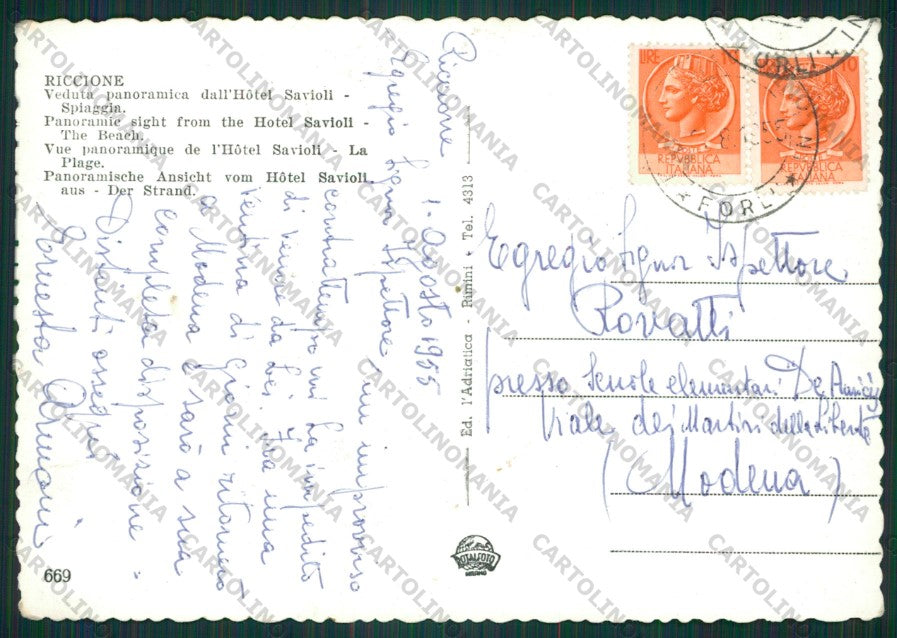 RICCIONE
Veduta panoramica dall'Hôtel Savioli -
Spiaggia.
Panoramic sight from the Hotel Savioli -
The Beach.
Vue panoramique de l'Hôtel Savioli - La
Plage.
Panoramische Ansicht vom Hôtel Savioli
aus - Der Strand.
Riccione
1. Agosto 1955
Egregio Signor Ispettore, un improvviso
contrattempo mi ha impedito
di venire da Lei. Fra una
ventina di giorni ritornerò
a Modena e sarò a sua
completa disposizione.
Distinti ossequi
Ernesta
669
Ed. l'Adriatica - Rimini - Tel. 4313
LIRE 10
POSTE
REPVBBLICA
ITALIANA
10
REPVBBLICA
ITALIANA
FORLI
FORLI
Egregio Signor Ispettore
Rovatti
presso Scuole elementari De Amicis
Viale dei Martiri della Libertà
(Modena)
TOTALFOTO
MILANO
CARTOLINOMANIA